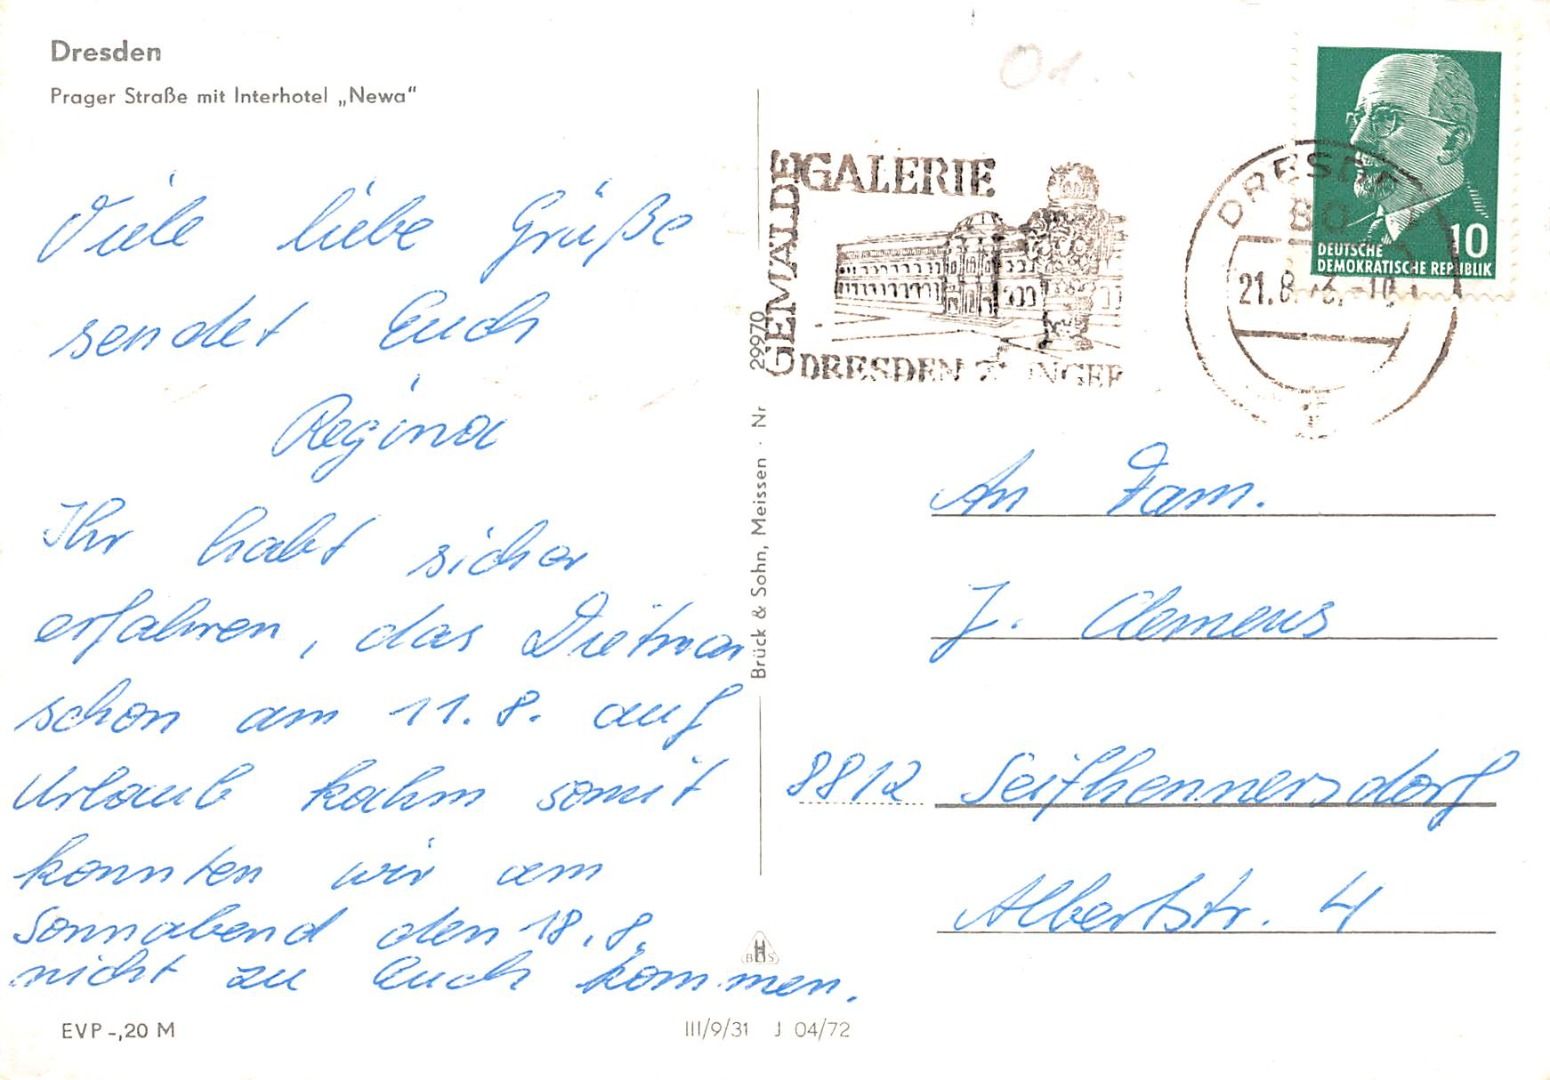 Dresden
Prager Straße mit Interhotel „Newa“
Viele liebe Grüße
sendet Euch
Regina
Ihr habt sicher
erfahren, das Dietmar
schon am 11.8. auf
Urlaub kahm somit
konnten wir am
Sonnabend den 18.8.
nicht zu Euch kommen.
EVP -,20 M
Brück & Sohn, Meissen · Nr 29970
BHS
III/9/31 J 04/72
GEMÄLDE
GALERIE
DRESDEN ZWINGER
DRESDEN
80
21.8.
-10
DEUTSCHE
DEMOKRATISCHE REPUBLIK
10
An Fam.
J. Clemens
8812 Seifhennersdorf
Albertstr. 4